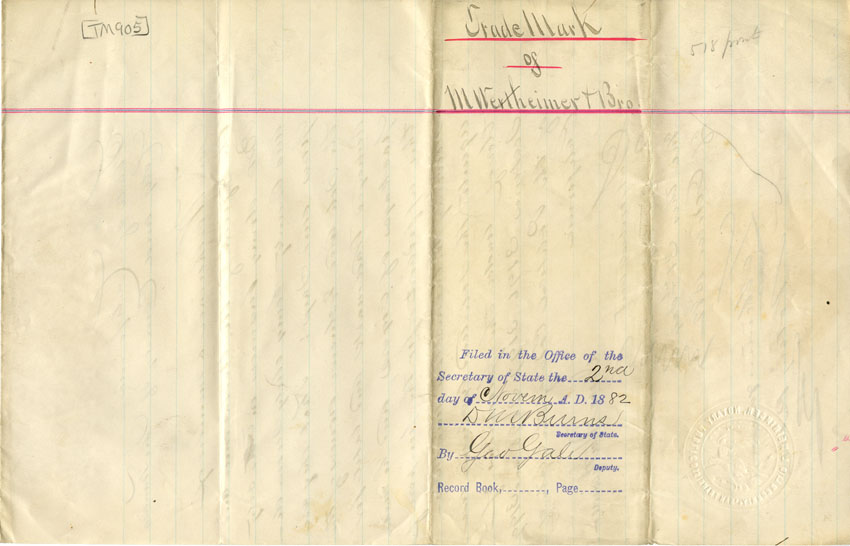 [TM905]
Trade Mark
of
M Wertheimer & Bro
518
Filed in the Office of the
Secretary of State the 2nd
day of Novem A. D. 1882
D M Burns
Secretary of State.
By Geo
Deputy.
Record Book, , Page